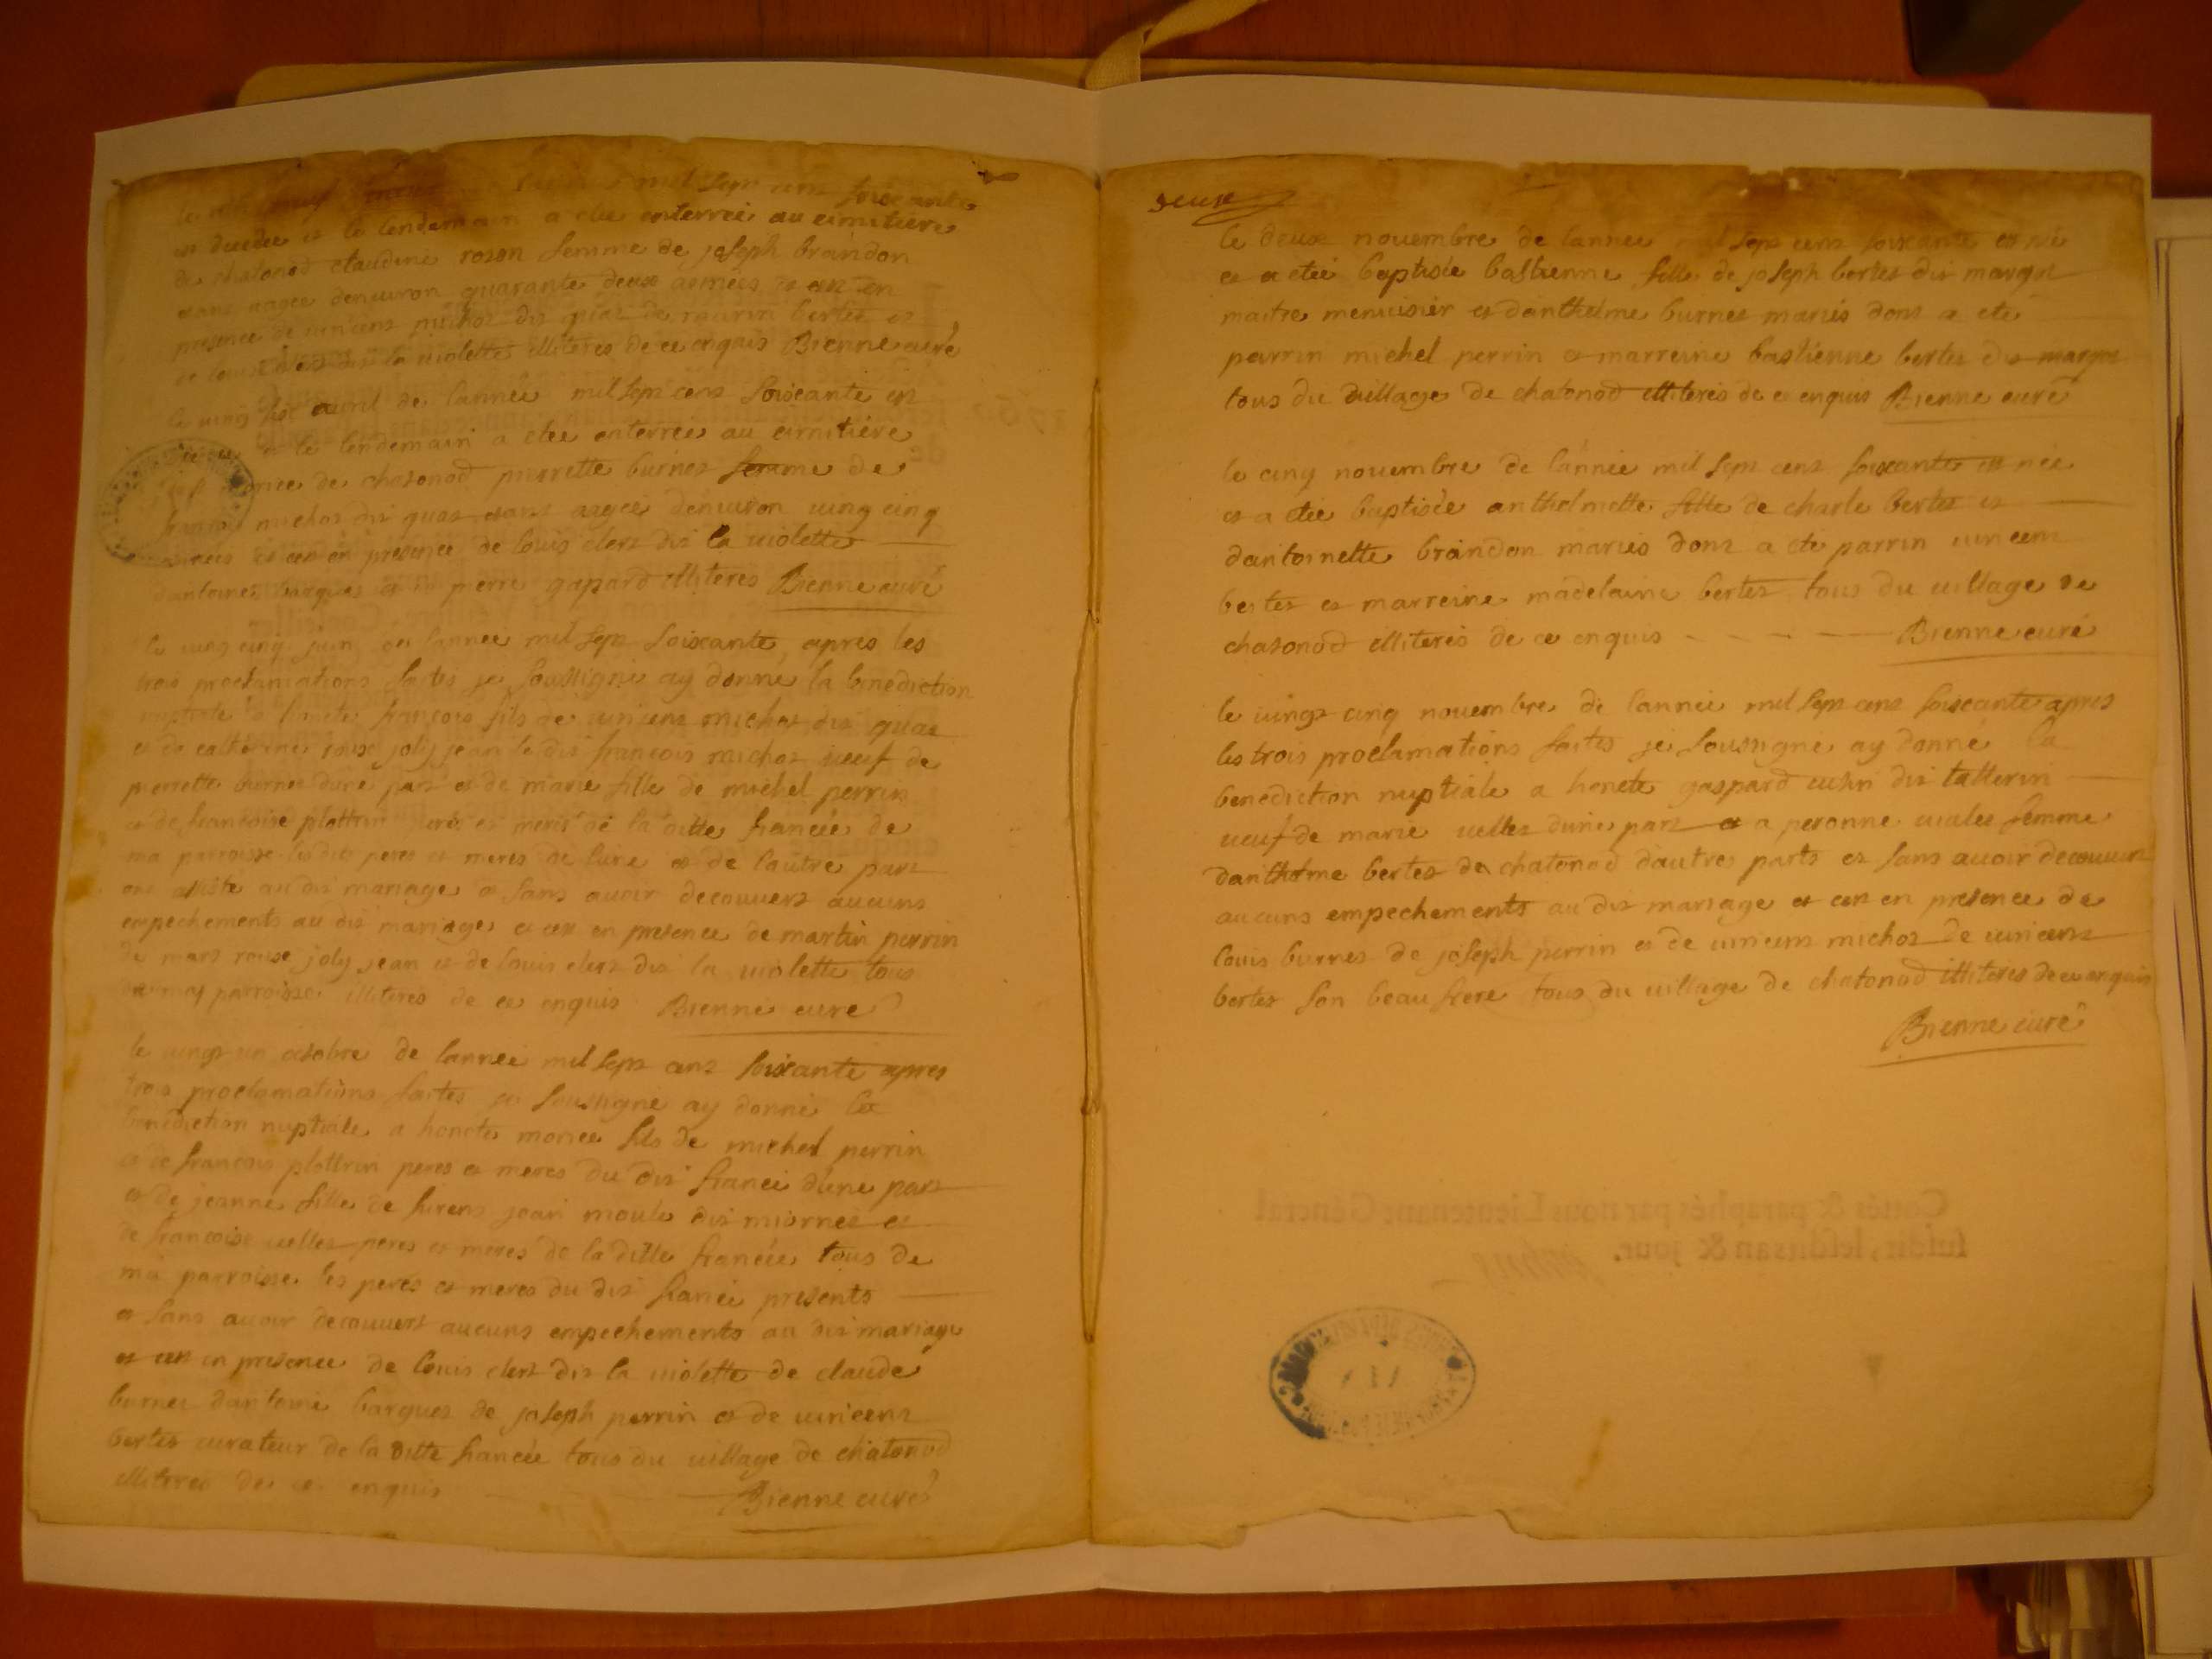 mil sept cens soixante
est decedee et le lendemain a etee enterree au cimitiere
de chatonod claudine rozon femme de joseph braindon
agee denuiron quarante deux annees et ce en
presence de uincens michoz dit quaz de martin bertet et
de louis clerz dit la uiolette illiteres de ce enquis Bienne curé
le uingt six auril de lannee mil sept cens soixante est
et le lendemain a etee enterree au cimitiere
de chatonod pierrette burnet femme de
francois michoz dit quaz agee denuiron uing cinq
annees et ce en presence de louis clerz dit la uiolette
dantoine barquet et de pierre gaspard illiteres Bienne curé
le uing cinq juin de lannee mil sept soixante, apres les
trois proclamations faites je soussigné ay donné la benediction
nuptiale a honete francois fils de uincens michoz dit quaz
et de catherine rouse joly jean le dit francois michoz ueuf de
pierrette burnet dune part et de marie fille de michel perrin
et de francoise plottrin peres et meres de la ditte fiancée de
ma parroisse les dits peres et meres de lune et de lautre part
ont assisté au dit mariage et sans auoir decouuert aucuns
empechements au dit mariage et ce en presence de martin perrin
de marz rouse joly jean et de louis clerz dit la uiolette tous
de ma parroisse illiteres de ce enquis Bienne curé
le uingt un octobre de lannee mil sept cens soixante apres
trois proclamations faites je soussigné ay donné la
benediction nuptiale a honete morice fils de michel perrin
et de francois plottrin peres et meres du dit fiancé dune part
et de jeanne fille de jean moule dit miornet et
de francoise uellet peres et meres de la ditte fiancée tous de
ma parroisse les peres et meres du dit fiancé presents
et sans auoir decouuert aucuns empechements au dit mariage
et ce en presence de louis clerz dit la uiolette de claude
burnet dantoine barquet de joseph perrin et de uincens
bertet curateur de la ditte fiancée tous du uillage de chatonod
illiteres de ce enquis Bienne curé
deuxe
le deux nouembre de lannee mil sept cens soixante est née
et a etée baptisée bastienne fille de joseph bertet dit marquet
maitre menuisier et danthelme burnet mariés dont a eté
parrin michel perrin et marreine bastienne bertet dit marquet
tous du uillage de chatonod illiteres de ce enquis Bienne curé
le cinq nouembre de lannée mil sept cens soixante est née
et a etée baptisée anthelmette fille de charle bertet et
dantoinette braindon mariés dont a eté parrin uincens
bertet et marreine madelaine bertet tous du uillage de
chatonod illiteres de ce enquis Bienne curé
le uingt cinq nouembre de lannée mil sept cens soixante apres
les trois proclamations faites je soussigné ay donné la
benediction nuptiale a honete gaspard dit tallerin
ueuf de marie uellet dune part et a peronne uialet femme
danthelme bertet de chatonod dautres parts et sans auoir decouuert
aucuns empechements au dit mariage et ce en presence de
louis burnet de joseph perrin et de uincens michoz de uincens
bertet son beau frere tous du uillage de chatonod illiteres de ce enquis
Bienne curé
Cottés & paraphés par nous Lieutenant Général
susdit, lesdits an & jour.